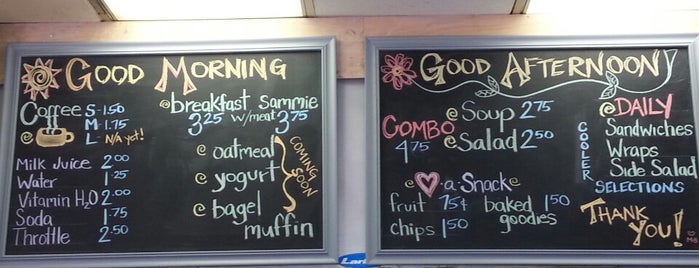 GOOD MORNING
Coffee S - 1.50
M - 1.75
L - N/A yet!
Milk Juice 2.00
Water 1.25
Vitamin H2O 2.00
Soda 1.75
Throttle 2.50
breakfast Sammie
3.25 w/meat 3.75
oatmeal
yogurt
bagel
muffin
COMING SOON
GOOD AFTERNOON
COMBO
4.75
Soup 2.75
Salad 2.50
COOLER
DAILY
Sandwiches
Wraps
Side Salad
SELECTIONS
a Snack
fruit 75¢
chips 1.50
baked goodies 1.50
THANK YOU!